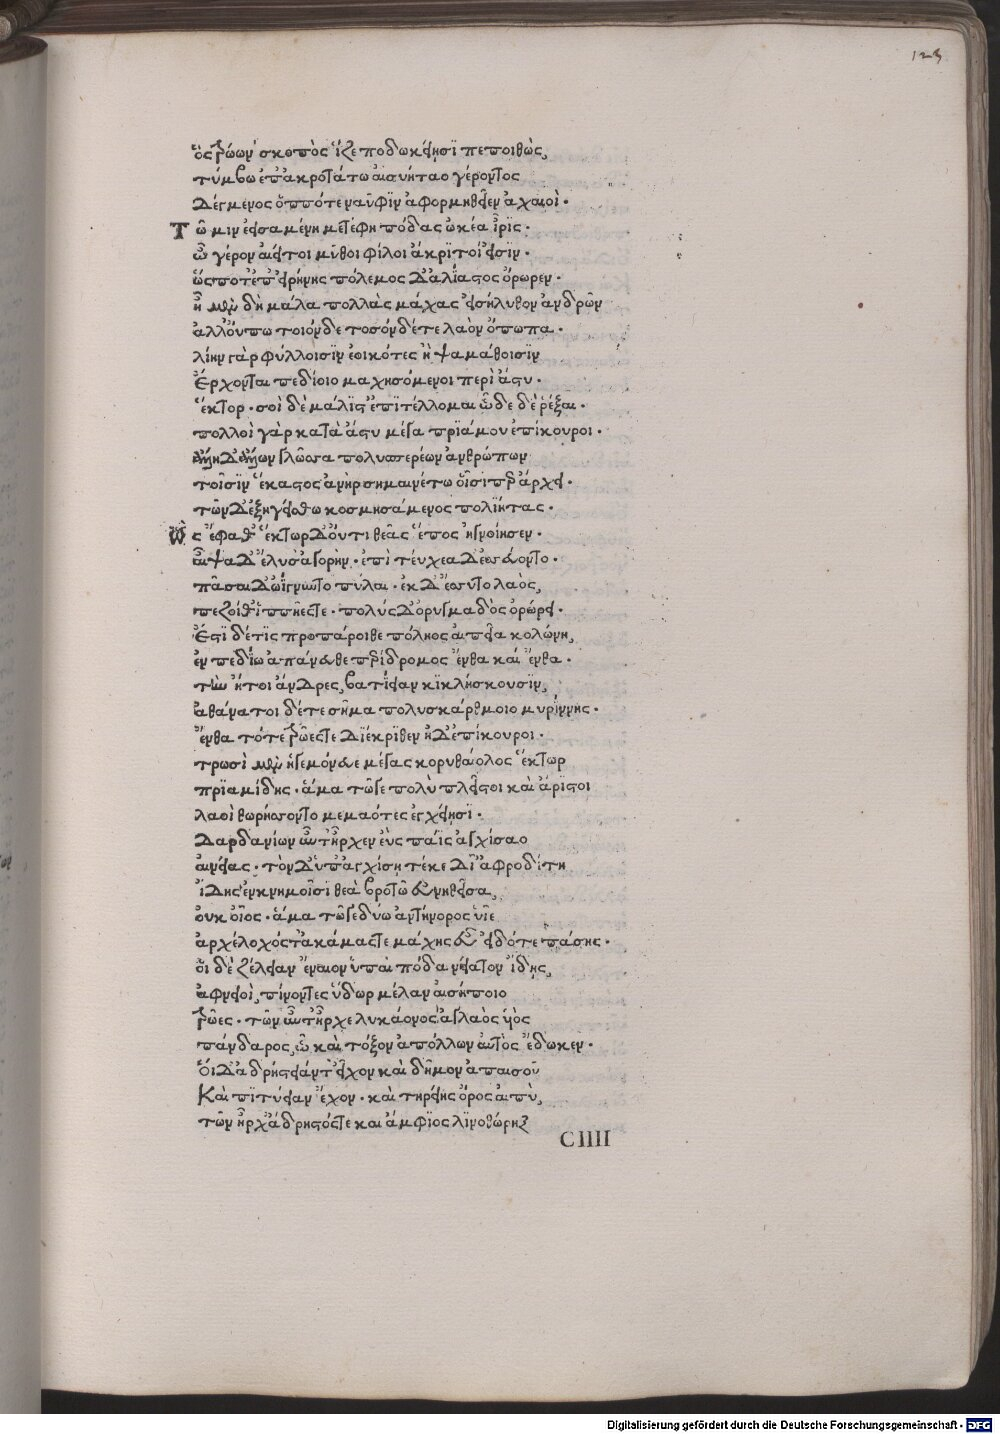 123
ὃς τρώων σκοπὸς ἷζε ποδωκείησϊ πεποιθὼς,
τύμβω ἐπ' ἀκροτάτω αἰσυήταο γέροντος
δέγμενος ὁππότε ναῦφϊν ἀφορμηθεῖεν ἀχαιοὶ·
Τῶ μιν ἐεισαμένη μετέφη πόδας ὠκέα ἶρϊς·
ὦ γέρον αἰεί τοι μῦθοι φίλοι ἄκρϊτοί εἰσϊν·
ὥς ποτ' ἐπ' εἰρήνης πόλεμος δ' ἀλίαστος ὄρωρεν·
ἦ μὲν δὴ μάλα πολλὰς μάχας εἰσήλυθον ἀνδρῶν
ἀλλ' οὔπω τοιόνδε τοσόνδέ τε λαὸν ὄπωπα·
λίην γὰρ φύλλοισϊν ἐοικότες ἢ ψαμάθοισϊν
ἔρχονται πεδίοιο μαχησόμενοι περὶ ἄστυ·
ἕκτορ· σοὶ δὲ μάλϊστ' ἐπϊτέλλομαι ὧδε δὲ ῥέξαι·
πολλοὶ γὰρ κατὰ ἄστυ μέγα πρϊάμου ἐπίκουροι·
ἄλλη δ' ἄλλων γλῶσσα πολυσπερέων ἀνθρώπων
τοῖσϊν ἕκαστος ἀνὴρ σημαινέτω οἷσί περ ἄρχει·
τῶν δ' ἐξηγείσθω κοσμησάμενος πολϊήτας·
Ὣς ἔφαθ' ἕκτωρ δ' οὔτι θεᾶς ἔπος ἠγνοίησεν·
αἶψα δ' ἔλυσ' ἀγορήν· ἐπὶ τέυχεα δ' ἐσσεύοντο·
πᾶσαι δ' ὠίγνυντο πύλαι· ἐκ δ' ἔσσυτο λαὸς,
πεζοίθ' ἱππῆές τε· πολὺς δ' ὀρυγμαδὸς ὀρώρει·
Ἔστϊ δέ τϊς προπάροιθε πόληος αἰπεῖα κολώνη,
ἐν πεδίω ἀπάνευθε περίδρομος ἔνθα καὶ ἔνθα·
τὴν ἤτοι ἄνδρες, βατίειαν κϊκλήσκουσϊν,
ἀθάνατοι δέ τε σῆμα πολυσκάρθμοιο μυρίννης·
ἔνθα τότε τρῶές τε δϊέκρϊθεν ἠδ' ἐπίκουροι·
τρωσὶ μὲν ἡγεμόνευε μέγας κορυθαίολος ἕκτωρ
πρϊαμίδης· ἅμα τῶγε πολὺ πλεῖστοι καὶ ἄρϊστοι
λαοὶ θωρήσσοντο μεμαότες ἐγχείησϊ·
δαρδανίων αὖτ' ἦρχεν ἐὺς παῒς ἀγχίσαο
αἰνείας· τὸν δ' ὑπ' ἀγχίση τέκε δῖ' ἀφροδίτη
ἴδης ἐν κνημοῖσϊ θεὰ βροτῶ εὐνηθεῖσα,
οὐκ οἶος· ἅμα τῶγε δύω ἀντήνορος υἷε
ἀρχέλοχός τ' ἀκάμας τε μάχης εὖ εἰδότε πάσης·
οἳ δὲ ζέλειαν ἔναιον ὑπαὶ πόδα νείατον ἴδης,
ἀφνειοὶ, πίνοντες ὕδωρ μέλαν αἰσήποιο
τρῶες· τῶν αὖτ' ἦρχε λυκάονος ἀγλαὸς υἱὸς
πάνδαρος, ᾧ καὶ τόξον ἀπόλλων αὐτὸς ἔδωκεν·
Ὁὶ δ' ἀδρήστειάν τ' εἶχον καὶ δῆμον ἀπαισοῦ
Καὶ πϊτύειαν ἔχον· καὶ τηρείης ὄρος αἰπὺ,
τῶν ἦρχ' ἄδρηστός τε καὶ ἄμφϊος λϊνοθώρηξ
CIIII
Digitalisierung gefördert durch die Deutsche Forschungsgemeinschaft - DFG